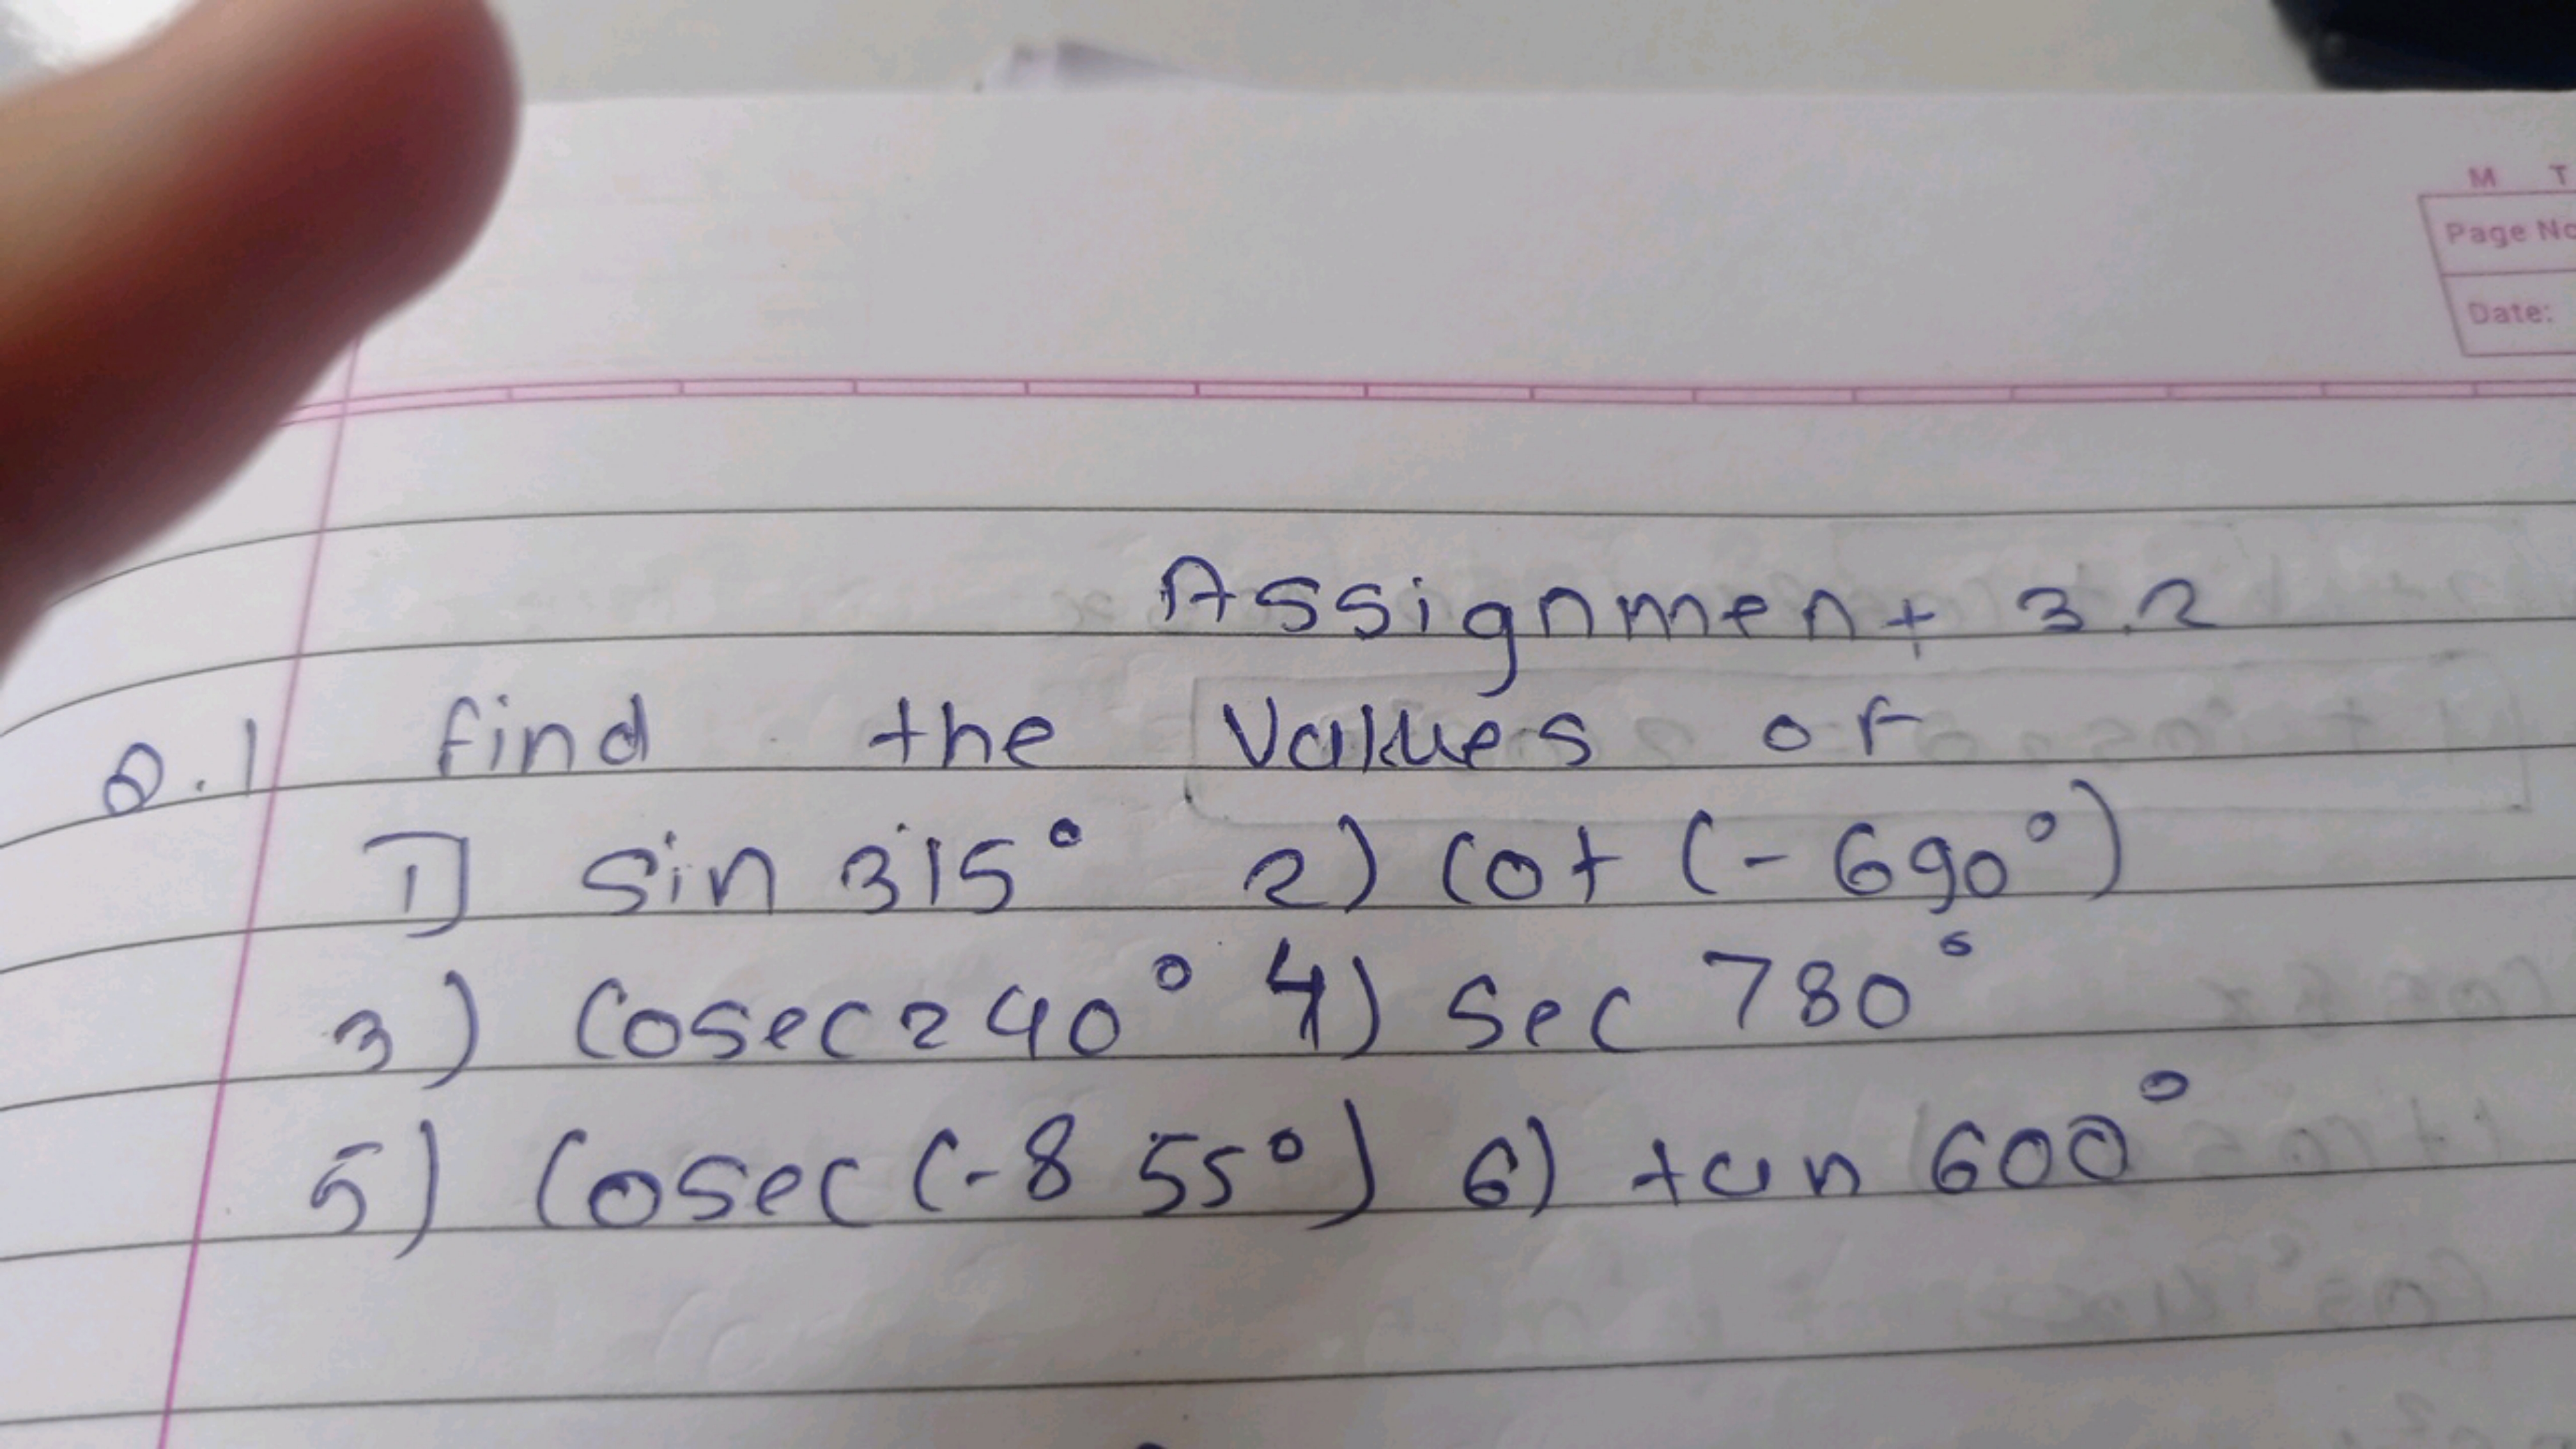 M T
Page No
Date:
Assignment 3.2
Q.1 find the values of
1) sin 315° 2) cot (-690°)
3) cosec 240° 4) sec 780°
5) cosec (-855°) 6) tan 600°